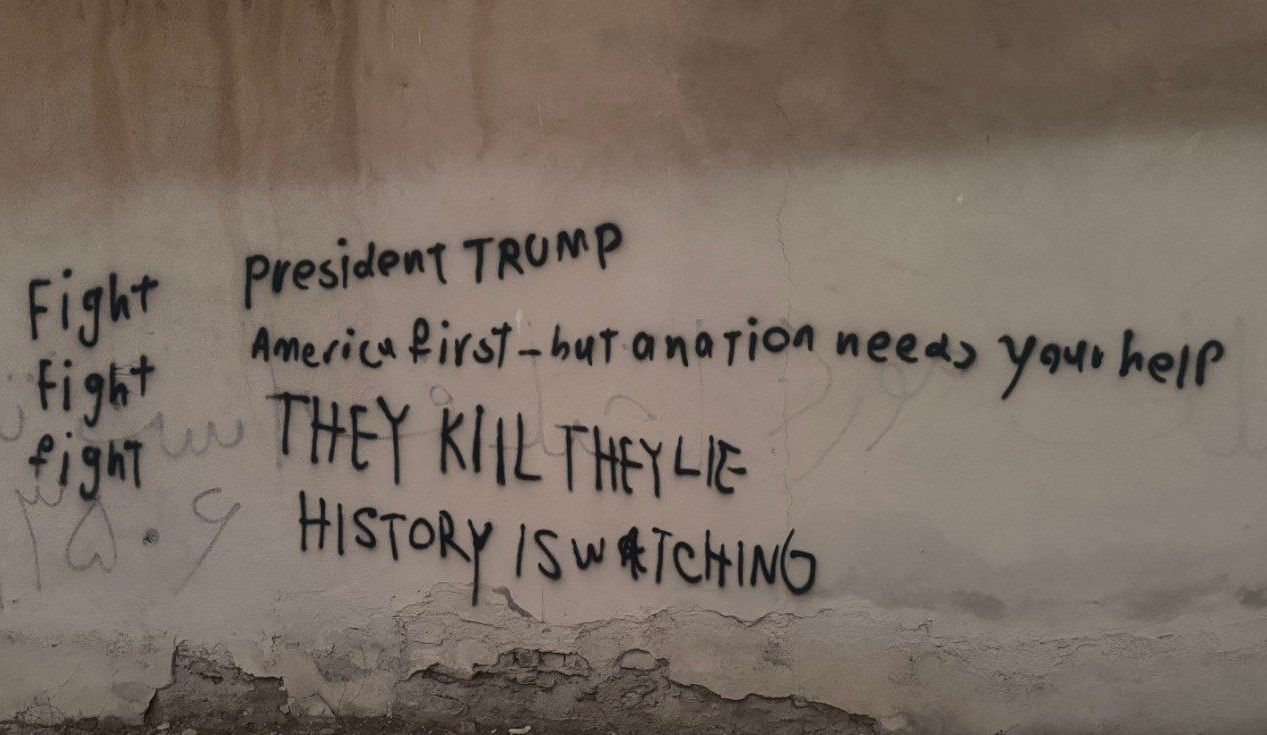 Fight
Fight
fight
President TRUMP
America first - but a nation needs your help
THEY KILL THEY LIE
HISTORY IS WATCHING
۳۵۰۶